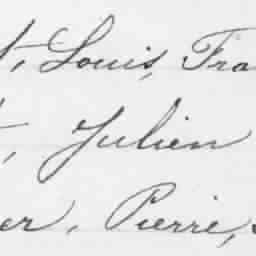 t, Louis, Fra
, Julien
er, Pierre,